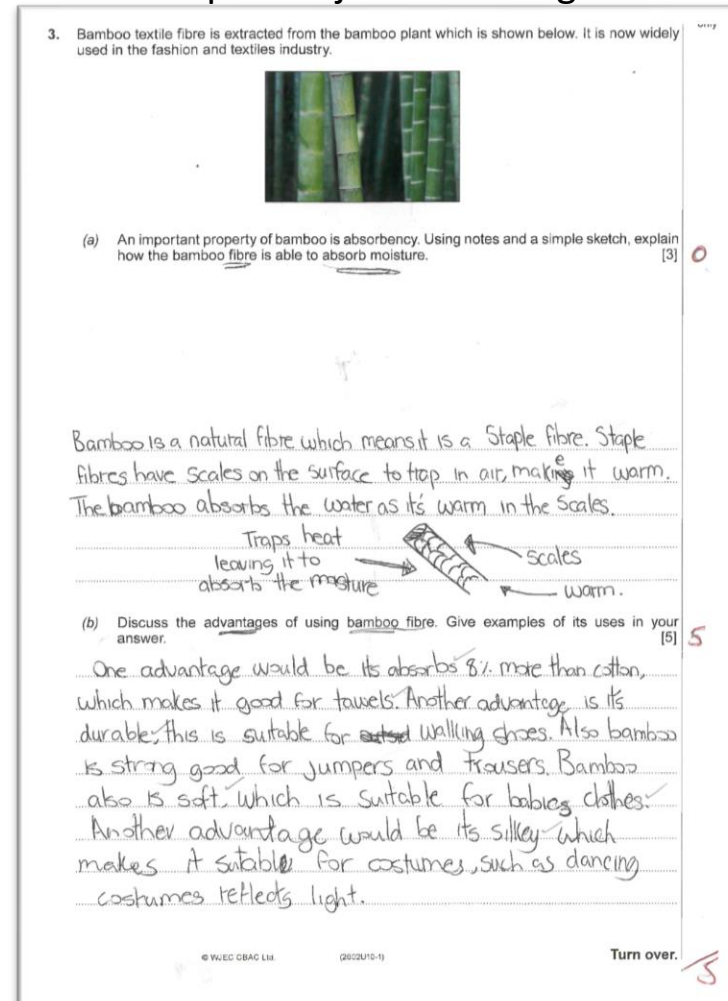 only
3. Bamboo textile fibre is extracted from the bamboo plant which is shown below. It is now widely
used in the fashion and textiles industry.
(a) An important property of bamboo is absorbency. Using notes and a simple sketch, explain
how the bamboo fibre is able to absorb moisture. [3] 0
Bamboo is a natural fibre which means it is a Staple fibre. Staple
fibres have scales on the surface to trap in air, make it warm.
The bamboo absorbs the water as it's warm in the scales.
Traps heat
leaving it to
absorb the moture
scales
warm.
(b) Discuss the advantages of using bamboo fibre. Give examples of its uses in your
answer. [5] 5
One advantage would be its absorbs 8% more than cotton,
which makes it good for towels. Another advantage is it's
durable, this is suitable for walking shoes. Also bamboo
is strong good for jumpers and trousers. Bamboo
also is soft, which is suitable for babies clothes.
Another advantage would be its silkey which
makes it sutable for costumes, such as dancing
costumes reflects light.
© WJEC CBAC Ltd. (2602U10-1) Turn over.
5